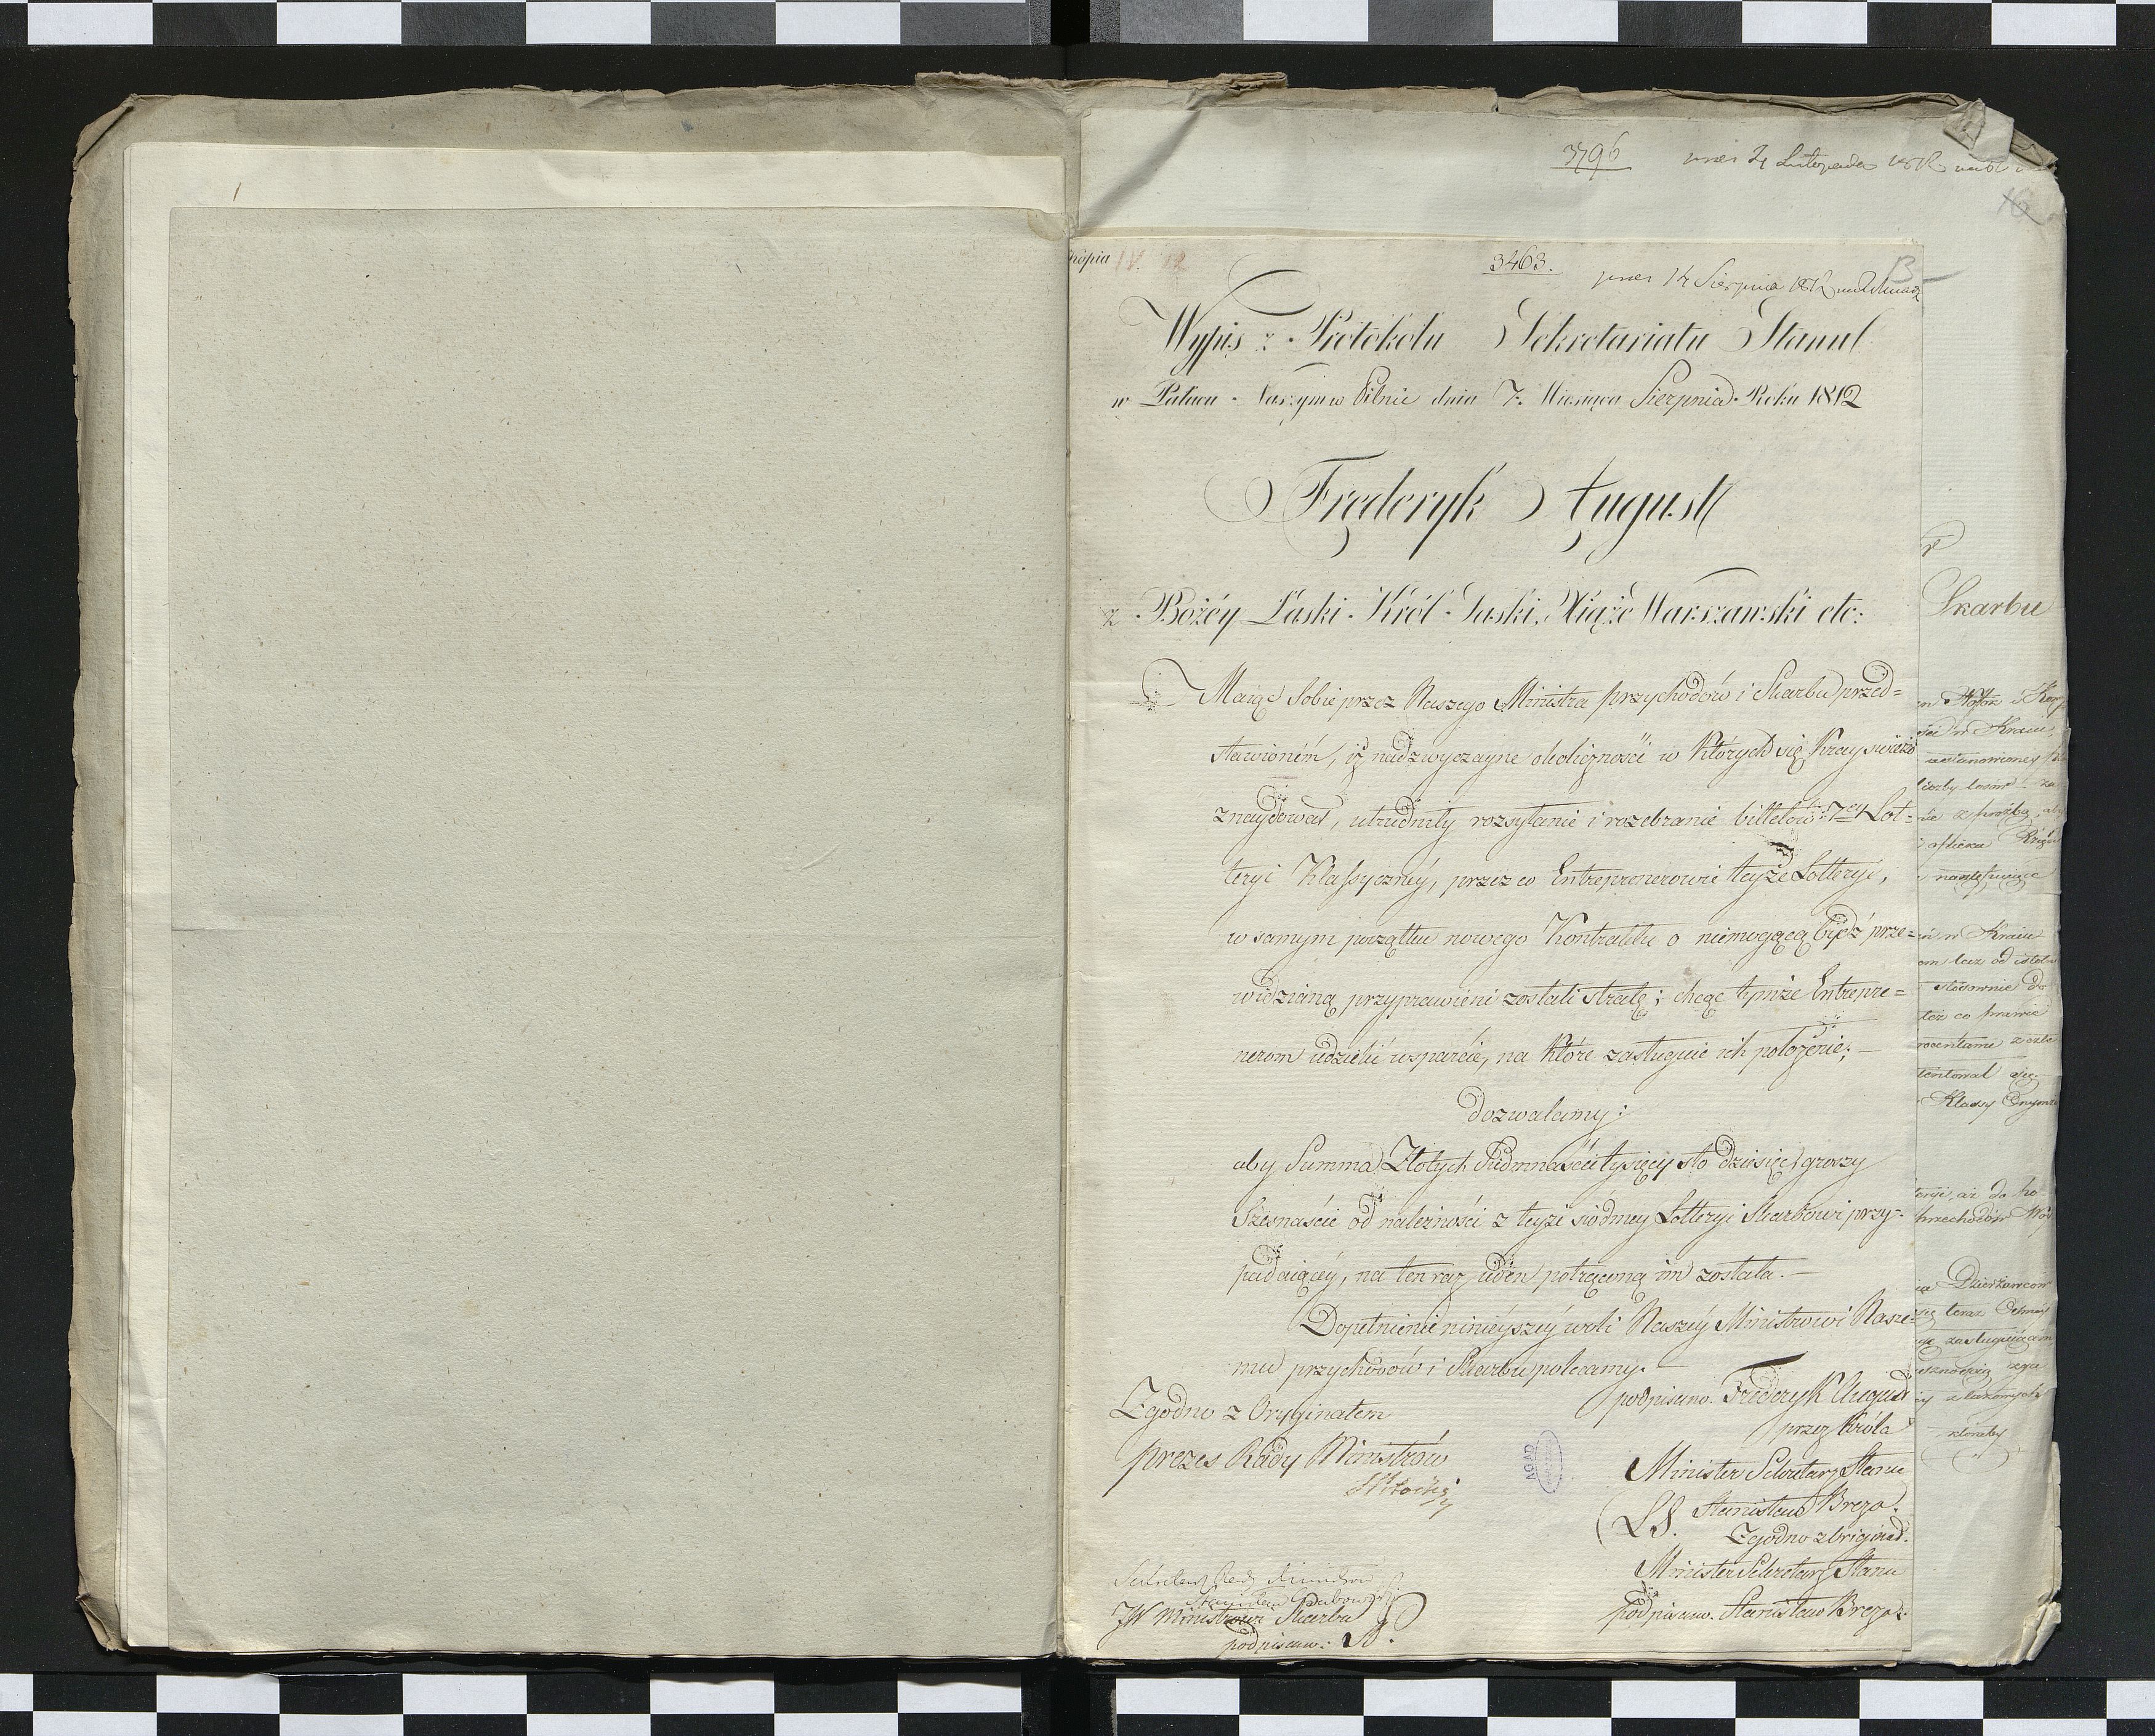 1
3796 2 Listopada 1812
Kopia
3463. 14 Sierpnia 1812
13
Wypis z Protokołu Sekretariatu Stanu
w Pałacu Naszym w Pilnic dnia 7. Miesiąca Sierpnia Roku 1812
Fryderyk August
z Bożéy Łaski Król Saski, Xiążę Warszawski etc:
Maiąc Sobie przez Naszego Ministra przychodów i Skarbu przed=
stawioném, iż nadzwyczayne okoliczności w których się Kray świeżo
znaydował, utrudniły rozsyłanie i rozebranie billetów 7ey Lot=
teryi Klassycznéy, przez co Entreprenerowie teyże Lotteryi,
w samym początku nowego Kontraktu o niemogącą bydź prze=
widzianą przyprawieni zostali stratę; chcąc tymże Entrepre=
nerom udzielić wsparcie, na które zasługuie ich położenie; —
dozwalamy;
aby Summa Złotych Siedmnaście tysięcy sto dziesięć groszy
Szesnaście od należności z teyże siódmey Lotteryi Skarbowi przy=
padaiącéy, na ten raz ieden potrąconą im została. —
Dopełnienie ninieyszéy woli Naszéy Ministrowi Nasze=
mu przychodów i Skarbu polecamy. —
podpisano. Fryderyk August
przez Króla
Minister Sekretarz Stanu
(LS. Stanisław Breza.
Zgodno z Oryginał.
Minister Sekretarz Stanu
podpisano. Stanisław Breza.
Zgodno z Oryginałem
prezes Rady Ministrów
Sekretarz Rady Ministrów
Stanisław Grabowski
JW Ministrowi Skarbu
podpisano:
AGAD
Skarbu
w Kraiu,
zastanowioney
liczby losów
następuiące
w Kraiu
stósownie do
Klassy
aż do
Dzierżawców
teraz